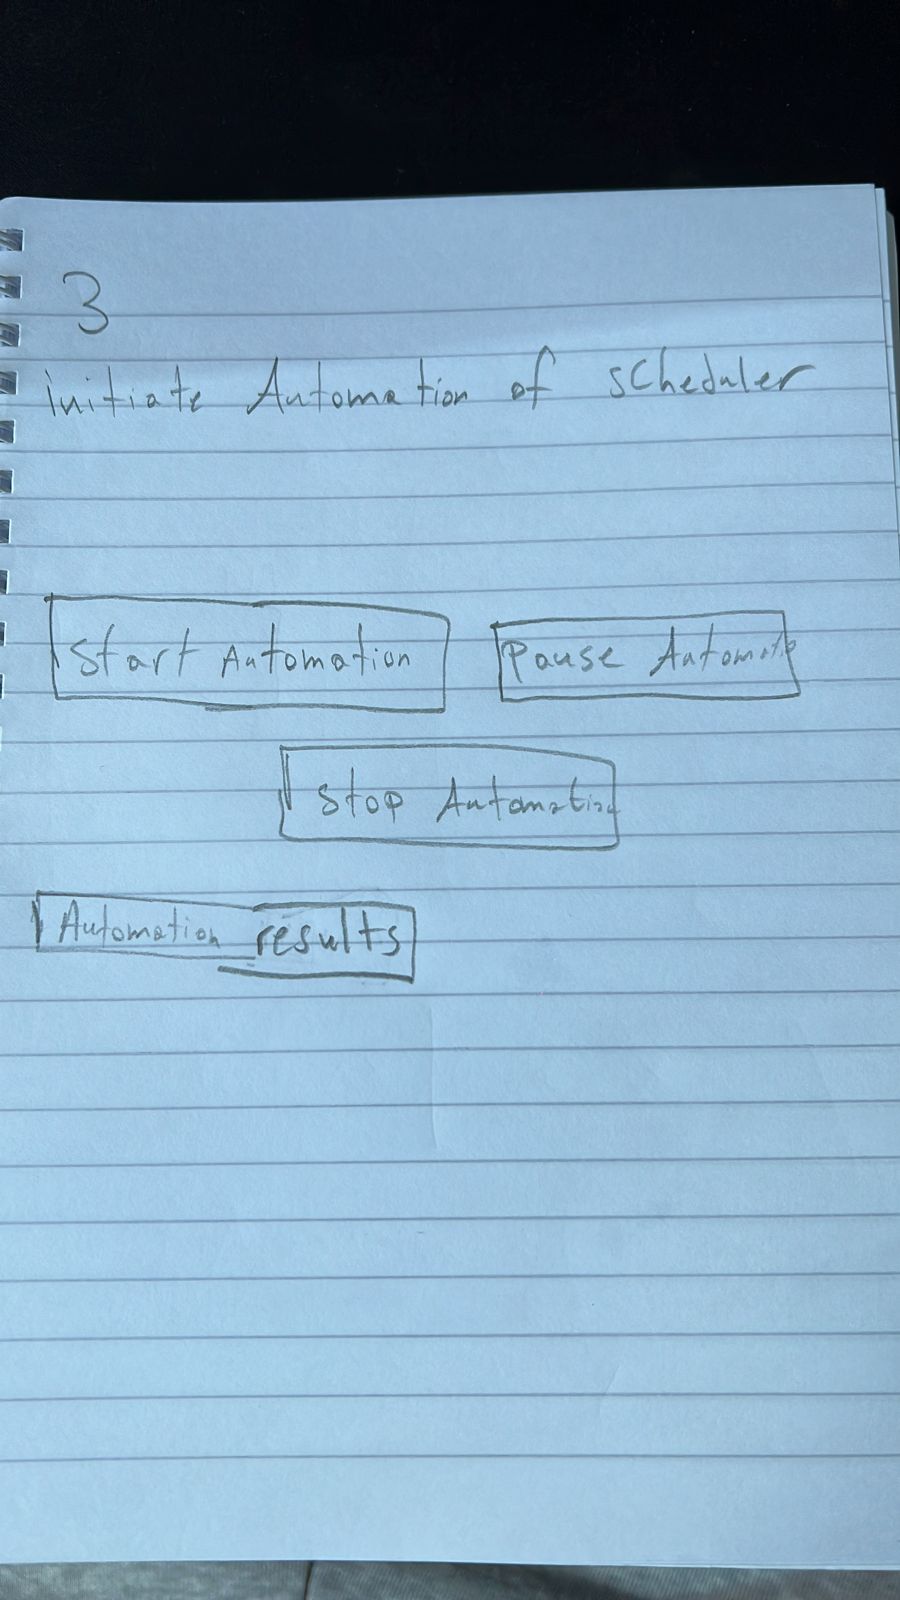 3
initiate Automation of scheduler
Start Automation
Pause Automate
Stop Automation
Automation results